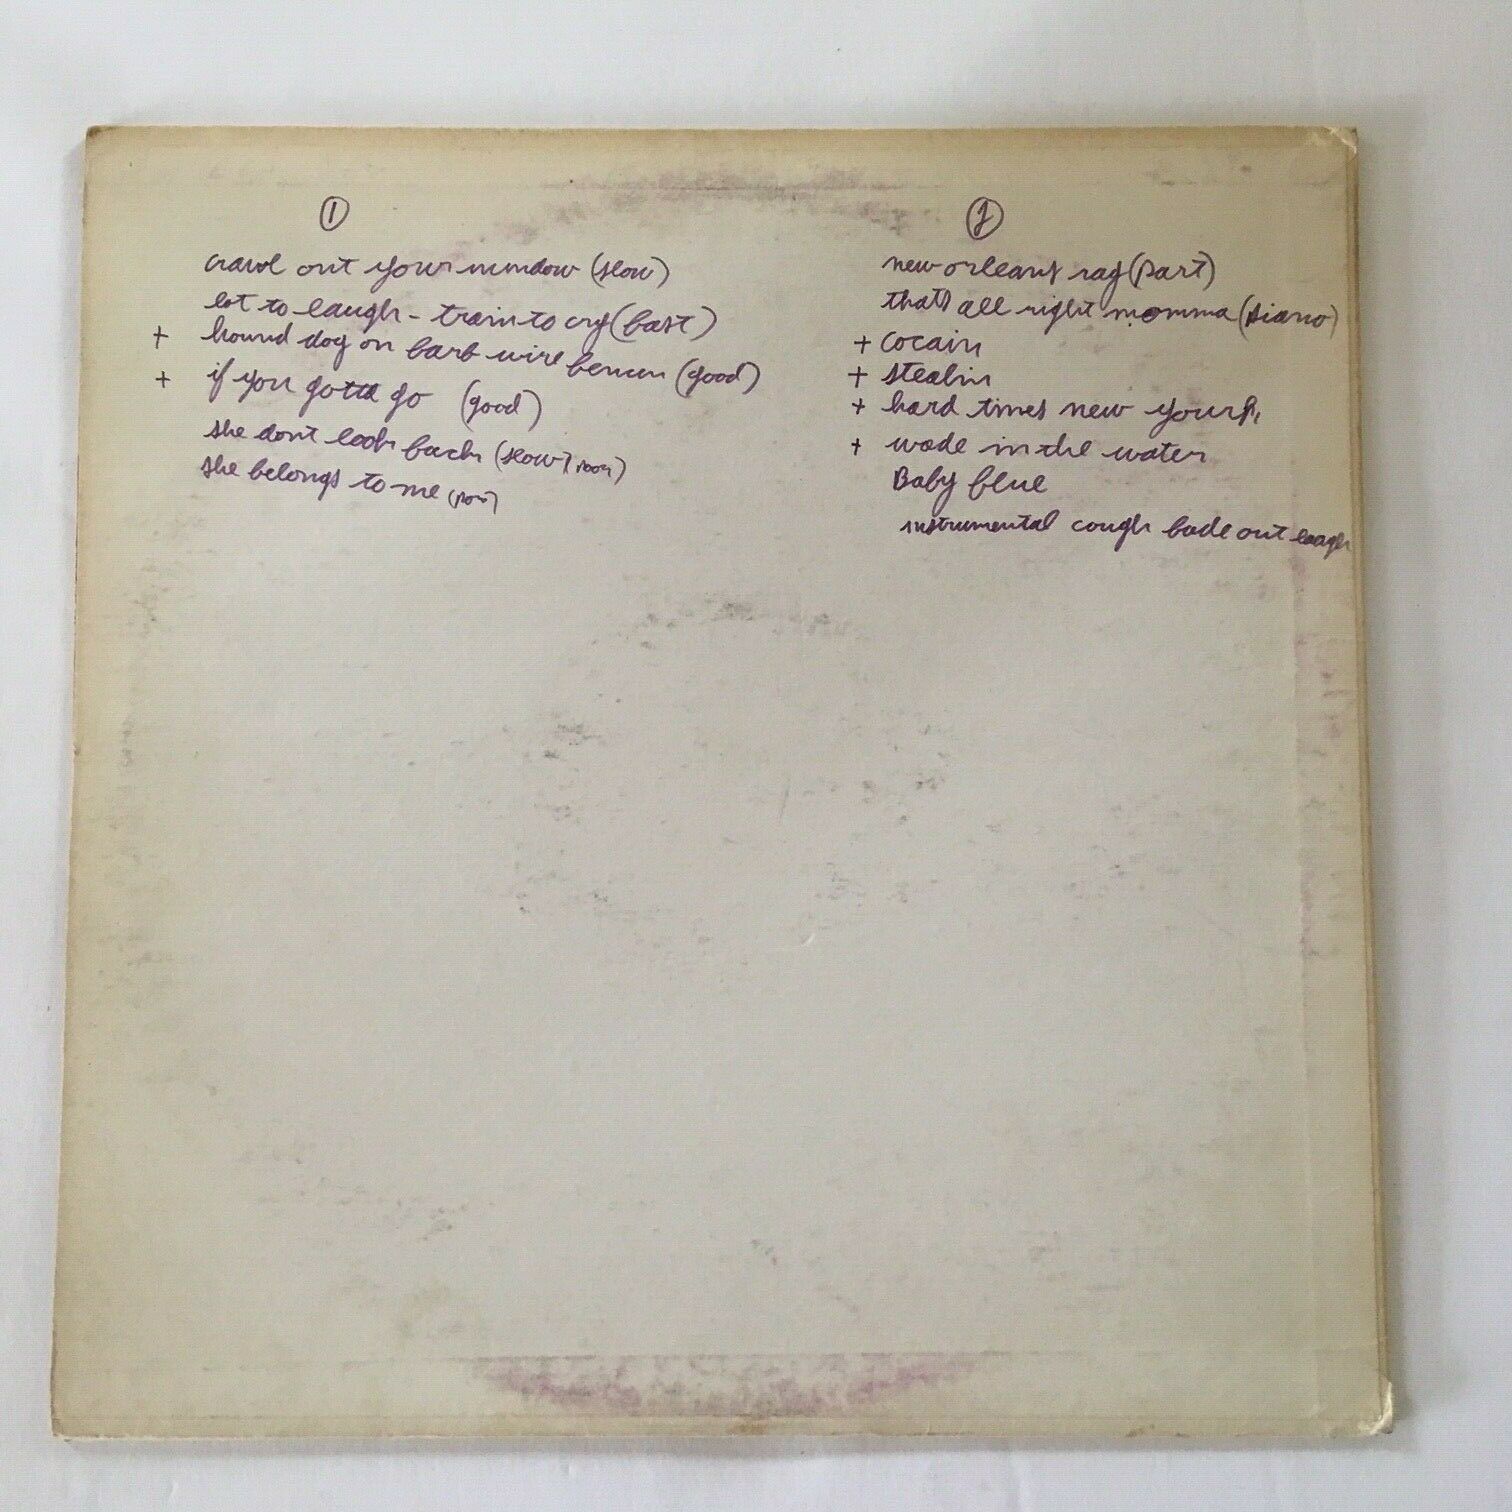 1
crawl out your window (slow)
lot to laugh - train to cry (fast)
+ hound dog on barb wire fence (good)
+ if you gotta go (good)
she dont look back (slow, poor)
she belongs to me (poor)
2
new orleans rag (part)
thats all right momma (piano)
+ cocain
+ stealin
+ hard times new york
+ wade in the water
Baby blue
instrumental cough fade out laugh